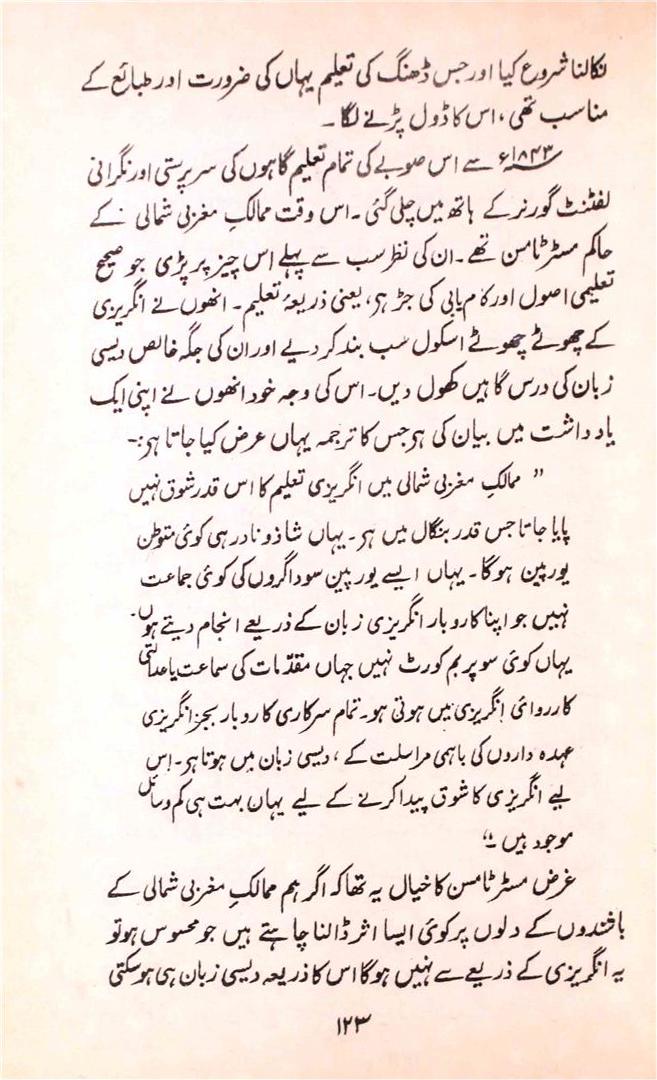 نکالنا شروع کیا اور جس ڈھنگ کی تعلیم یہاں کی ضرورت اور طبائع کے
مناسب تھی، اس کا ڈول پڑنے لگا۔
۱۸۴۳ء سے اس صوبے کی تمام تعلیم گاہوں کی سرپرستی اور نگرانی
لفٹنٹ گورنر کے ہاتھ میں چلی گئی۔ اس وقت ممالکِ مغربی شمالی کے
حاکم مسٹر ٹامسن تھے۔ ان کی نظر سب سے پہلے اس چیز پر پڑی جو صحیح
تعلیمی اصول اور کام یابی کی جڑ ہر، یعنی ذریعۂ تعلیم۔ انھوں نے انگریزی
کے چھوٹے چھوٹے اسکول سب بند کر دیے اور ان کی جگہ خالص دیسی
زبان کی درس گاہیں کھول دیں۔ اس کی وجہ خود انھوں نے اپنی ایک
یادداشت میں بیان کی ہر جس کا ترجمہ یہاں عرض کیا جاتا ہر:-
" ممالکِ مغربی شمالی میں انگریزی تعلیم کا اس قدر شوق نہیں
پایا جاتا جس قدر بنگال میں ہر۔ یہاں شاذ و نادر ہی کوئی متوطن
یورپین ہوگا۔ یہاں ایسے یورپین سوداگروں کی کوئی جماعت
نہیں جو اپنا کاروبار انگریزی زبان کے ذریعے انجام دیتے ہوں۔
یہاں کوئی سوپریم کورٹ نہیں جہاں مقدّمات کی سماعت یا عدالتی
کارروائی انگریزی میں ہوتی ہو۔ تمام سرکاری کاروبار بجز انگریزی
عہدہ داروں کی باہمی مراسلت کے، دیسی زبان میں ہوتا ہر۔ اِس
لیے انگریزی کا شوق پیدا کرنے کے لیے یہاں بہت ہی کم وسائل
موجود ہیں۔"
غرض مسٹر ٹامسن کا خیال یہ تھا کہ اگر ہم ممالکِ مغربی شمالی کے
باشندوں کے دلوں پر کوئی ایسا اثر ڈالنا چاہتے ہیں جو محسوس ہو تو
یہ انگریزی کے ذریعے سے نہیں ہوگا اس کا ذریعہ دیسی زبان ہی ہو سکتی
۱۲۳